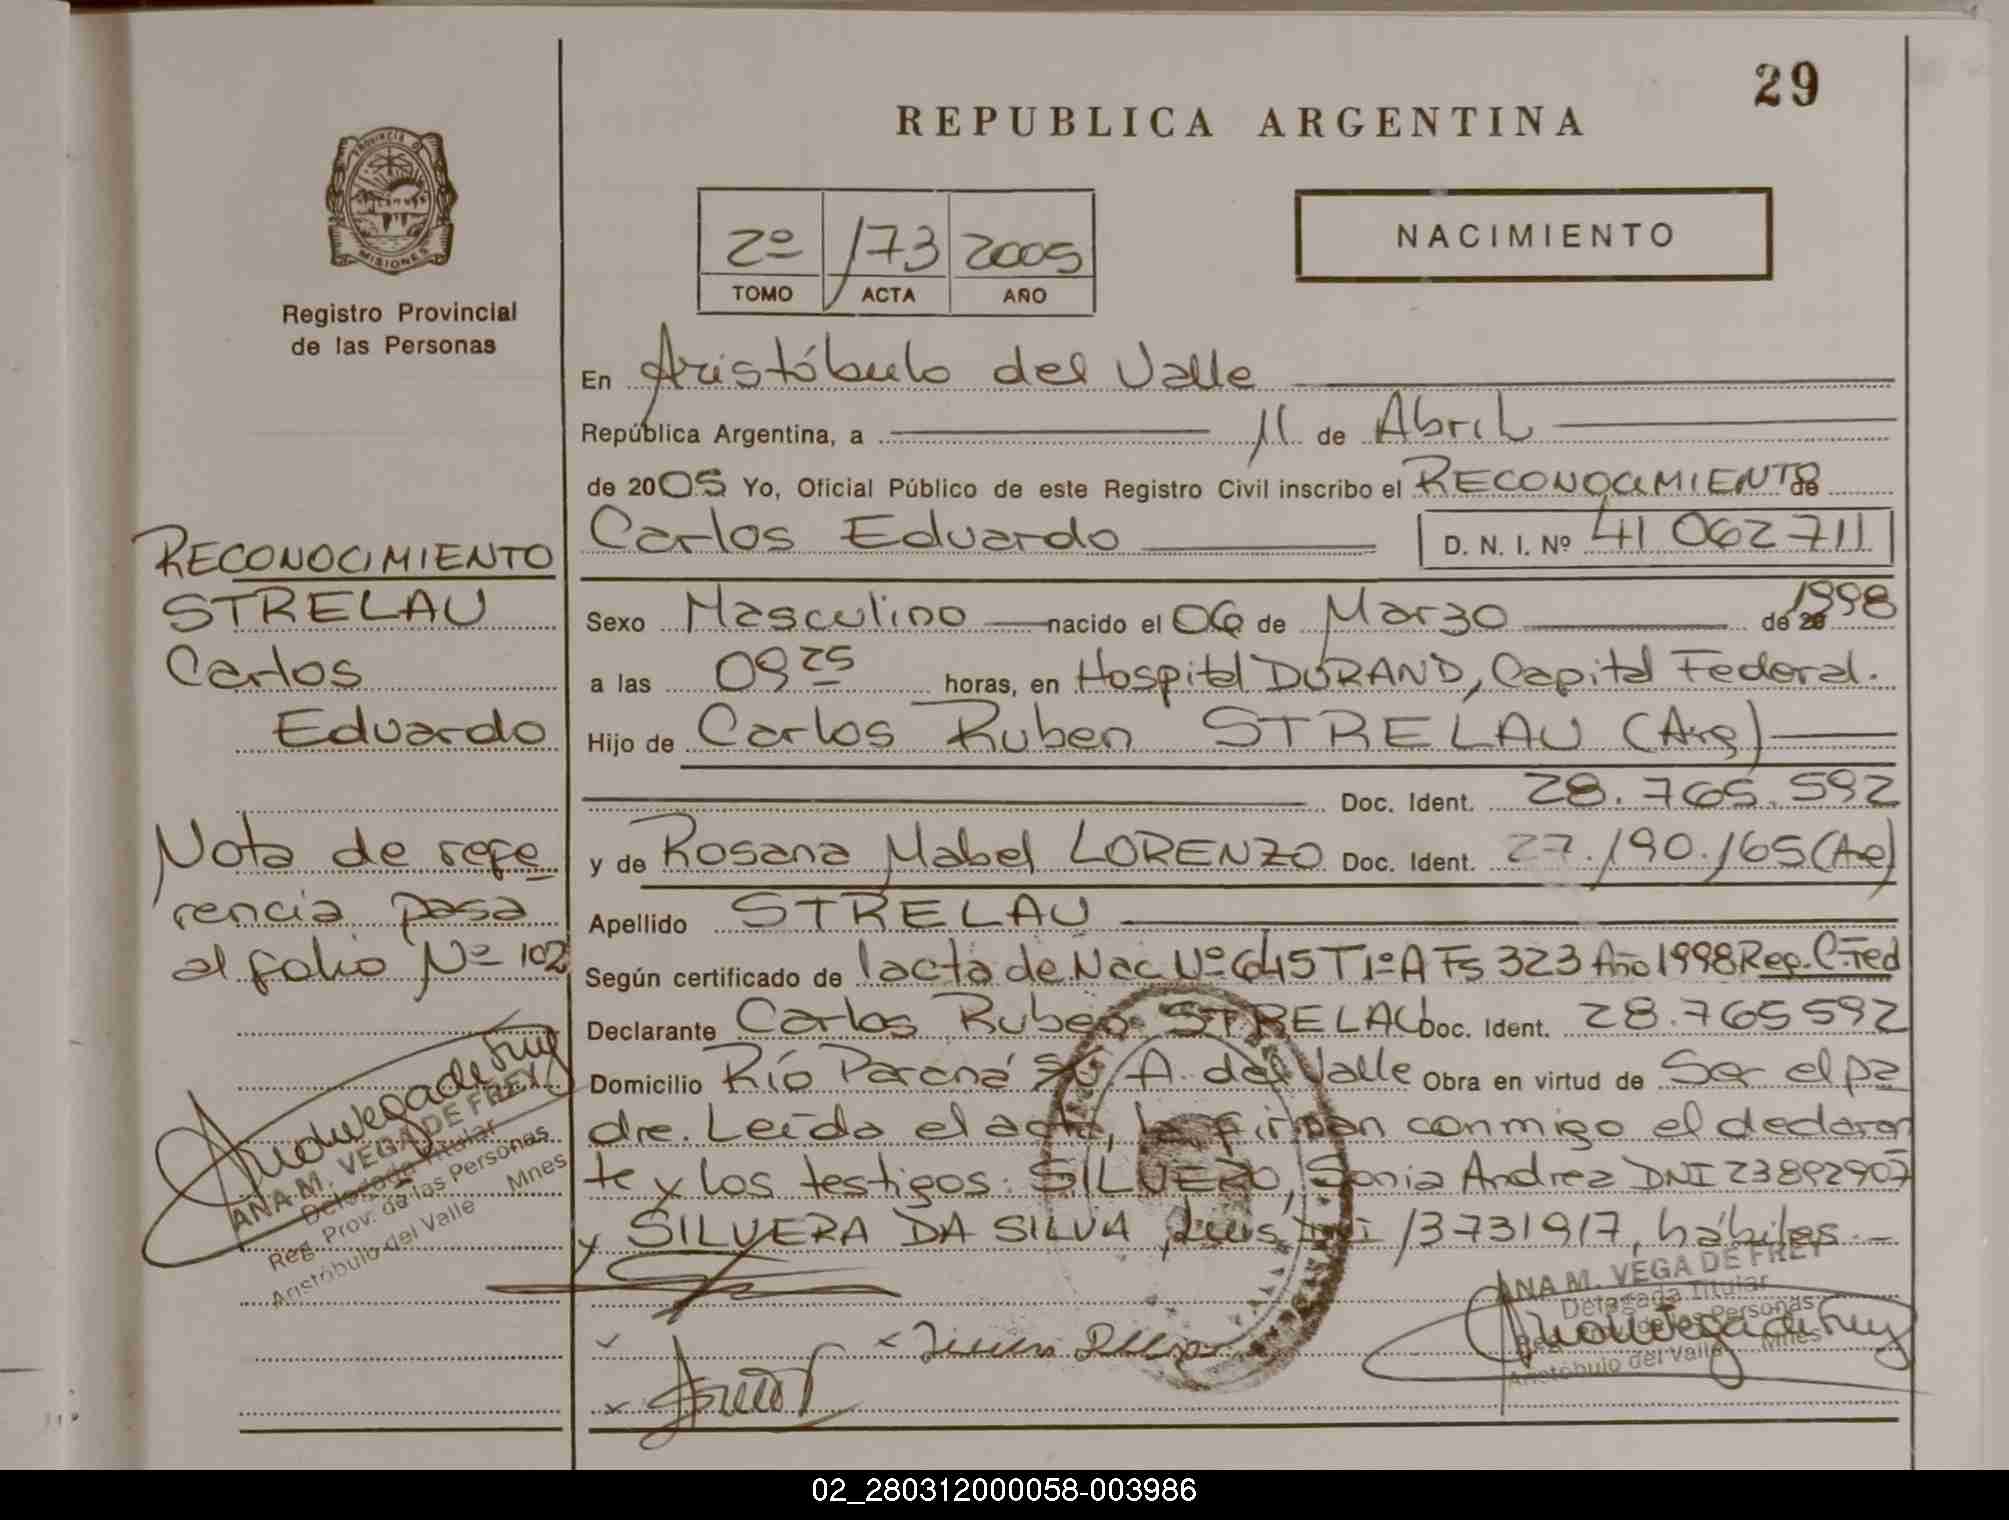 29
REPUBLICA ARGENTINA
PROVINCIA DE
MISIONES
Registro Provincial
de las Personas
2º 173 2005
TOMO ACTA AÑO
NACIMIENTO
En Aristóbulo del Valle
República Argentina, a 11 de Abril
de 2005 Yo, Oficial Público de este Registro Civil inscribo el RECONOCIMIENTO de
Carlos Eduardo D. N. I. Nº 41 062 711
Sexo Masculino nacido el 06 de Marzo de 20 1998
a las 09 25 horas, en Hospital DURAND, Capital Federal.
Hijo de Carlos Ruben STRELAU (Arg)
Doc. Ident. 28.765.592
y de Rosana Mabel LORENZO Doc. Ident. 27.190.165 (Arg)
Apellido STRELAU
Según certificado de l acta de Nac. Nº 645 T 1º A Fs 323 Año 1998 Reg. C. Fed
Declarante Carlos Ruben STRELAU Doc. Ident. 28.765592
Domicilio Río Paraná A. del Valle Obra en virtud de Ser el pa
dre. Leída el acta, la firman conmigo el declaran
te y los testigos: SILVERO, Sonia Andrea DNI 23892907
y SILVERA DA SILVA, Luis, DNI 13731917, hábiles.-
ANA M. VEGA DE FREY
Delegada Titular
Reg. Prov. de las Personas
Aristóbulo del Valle Mnes
RECONOCIMIENTO
STRELAU
Carlos
Eduardo
Nota de refe
rencia pasa
al folio Nº 102
ANA M. VEGA DE FREY
Delegada Titular
Reg. Prov. de las Personas
Aristóbulo del Valle Mnes
02_280312000058-003986